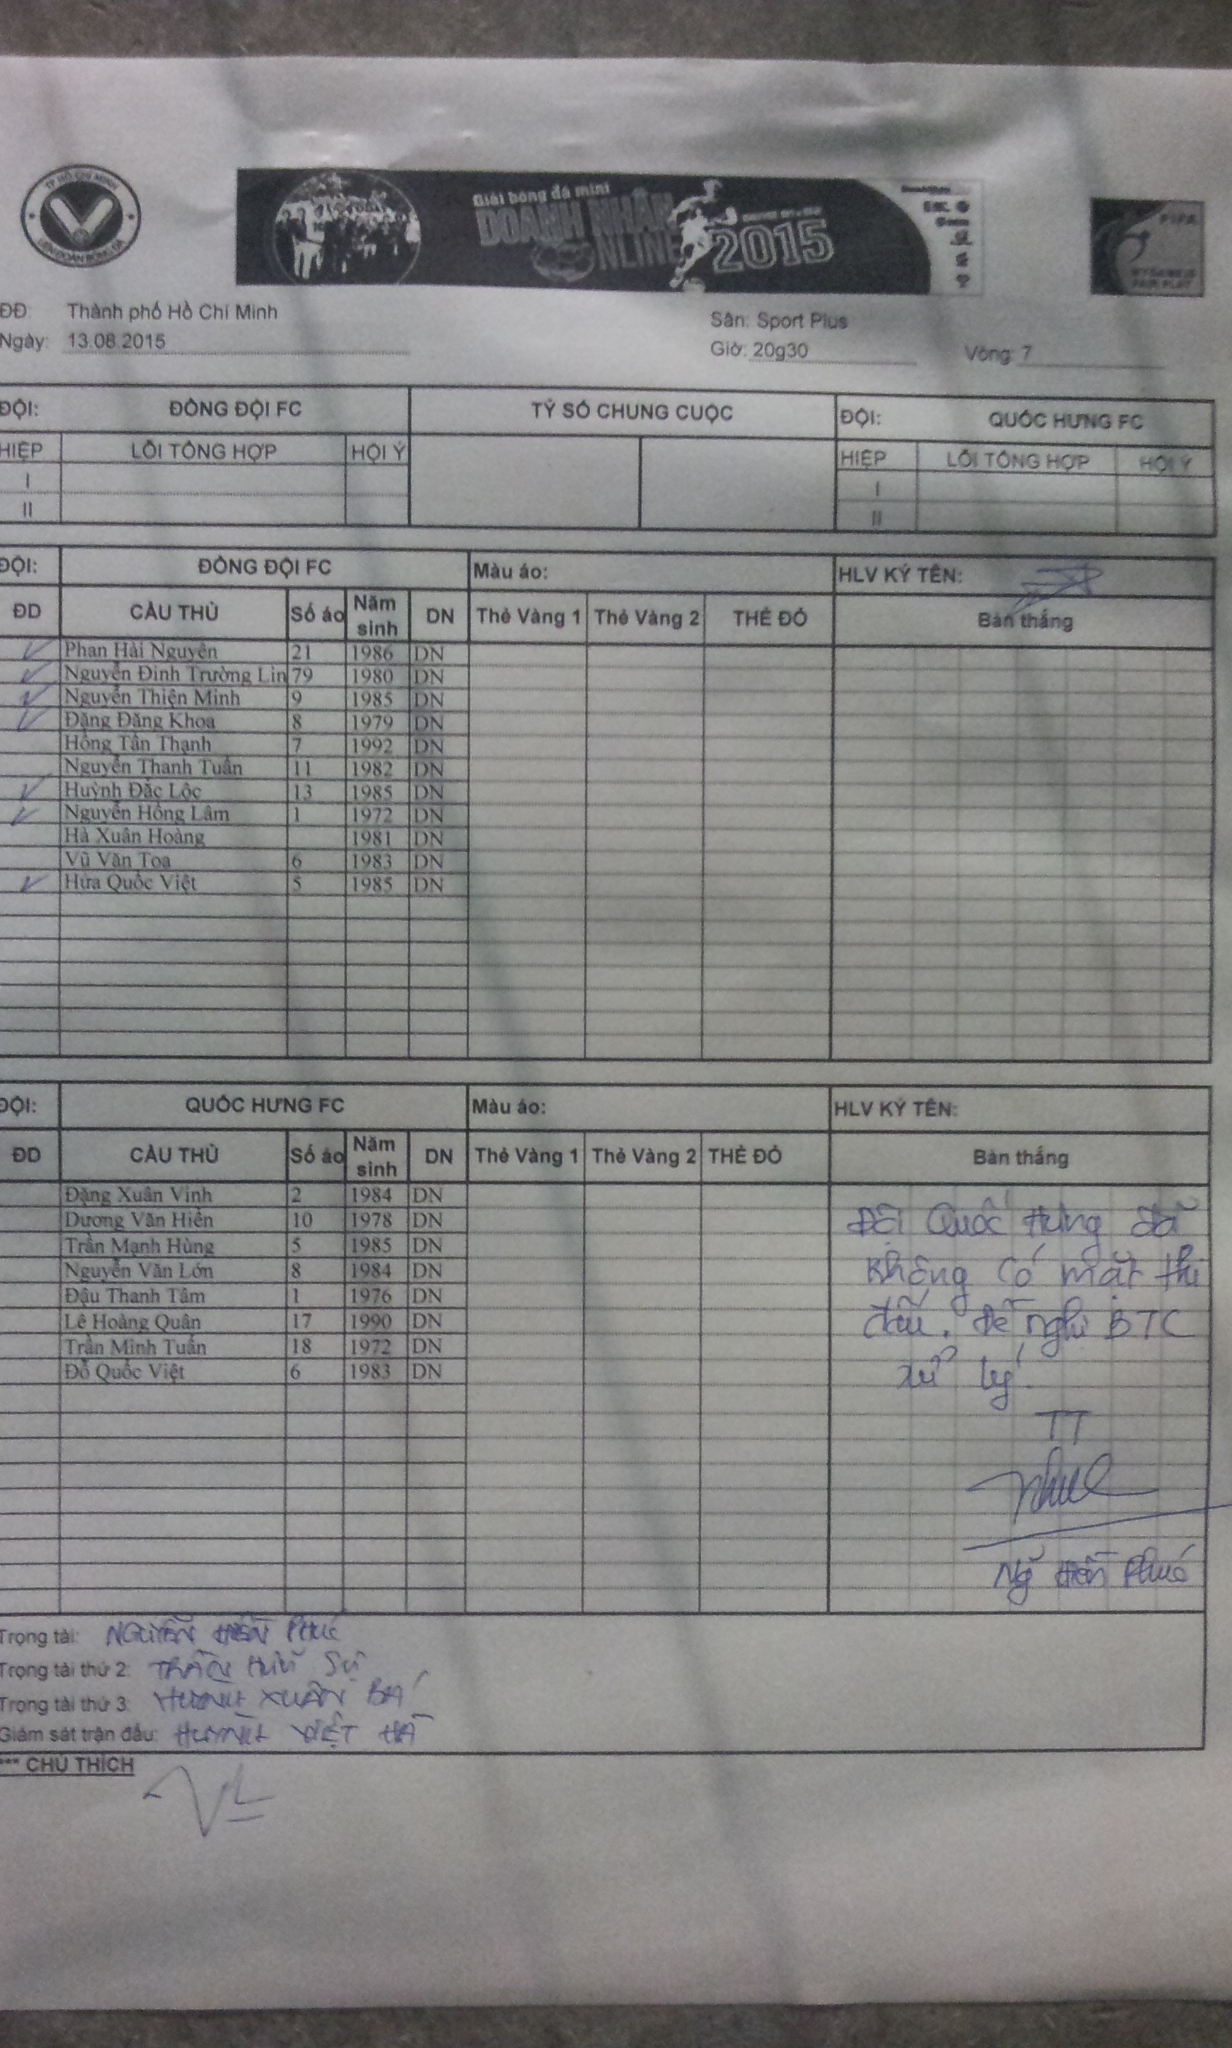 TP HỒ CHÍ MINH
LIÊN ĐOÀN BÓNG ĐÁ
Giải bóng đá mini
DOANH NHÂN
NLINE 2015
FIFA
MY GAME IS
FAIR PLAY
ĐĐ: Thành phố Hồ Chí Minh
Sân: Sport Plus
Ngày: 13.08.2015
Giờ: 20g30 Vòng: 7
ĐỘI: ĐỒNG ĐỘI FC TỶ SỐ CHUNG CUỘC ĐỘI: QUỐC HƯNG FC
HIỆP LỖI TỔNG HỢP HỘI Ý HIỆP LỖI TỔNG HỢP HỘI Ý
I I
II II
ĐỘI: ĐỒNG ĐỘI FC Màu áo: HLV KÝ TÊN:
ĐD CẦU THỦ Số áo Năm sinh DN Thẻ Vàng 1 Thẻ Vàng 2 THẺ ĐỎ Bàn thắng
Phan Hải Nguyên 21 1986 DN
Nguyễn Đình Trường Lin 79 1980 DN
Nguyễn Thiện Minh 9 1985 DN
Đặng Đăng Khoa 8 1979 DN
Hồng Tấn Thạnh 7 1992 DN
Nguyễn Thanh Tuấn 11 1982 DN
Huỳnh Đắc Lộc 13 1985 DN
Nguyễn Hồng Lâm 1 1972 DN
Hà Xuân Hoàng 1981 DN
Vũ Văn Toa 6 1983 DN
Hứa Quốc Việt 5 1985 DN
ĐỘI: QUỐC HƯNG FC Màu áo: HLV KÝ TÊN:
ĐD CẦU THỦ Số áo Năm sinh DN Thẻ Vàng 1 Thẻ Vàng 2 THẺ ĐỎ Bàn thắng
Đặng Xuân Vinh 2 1984 DN
Dương Văn Hiển 10 1978 DN
Trần Mạnh Hùng 5 1985 DN
Nguyễn Văn Lớn 8 1984 DN
Đậu Thanh Tâm 1 1976 DN
Lê Hoàng Quân 17 1990 DN
Trần Minh Tuấn 18 1972 DN
Đỗ Quốc Việt 6 1983 DN
Đội Quốc Hưng đã
không có mặt thi
đấu. Đề nghị BTC
xử lý.
TT
Ng Hiền Phúc
Trọng tài: NGUYỄN HIỀN PHÚC
Trọng tài thứ 2: TRẦN HỮU SỰ
Trọng tài thứ 3: HUỲNH XUÂN BÁ
Giám sát trận đấu: HUỲNH VIỆT HÀ
*** CHÚ THÍCH